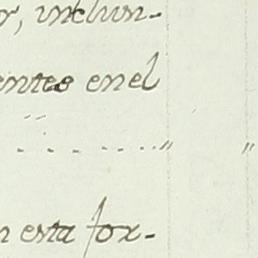 r, inclun-
entes enel
. . . . . . " "
n esta for-